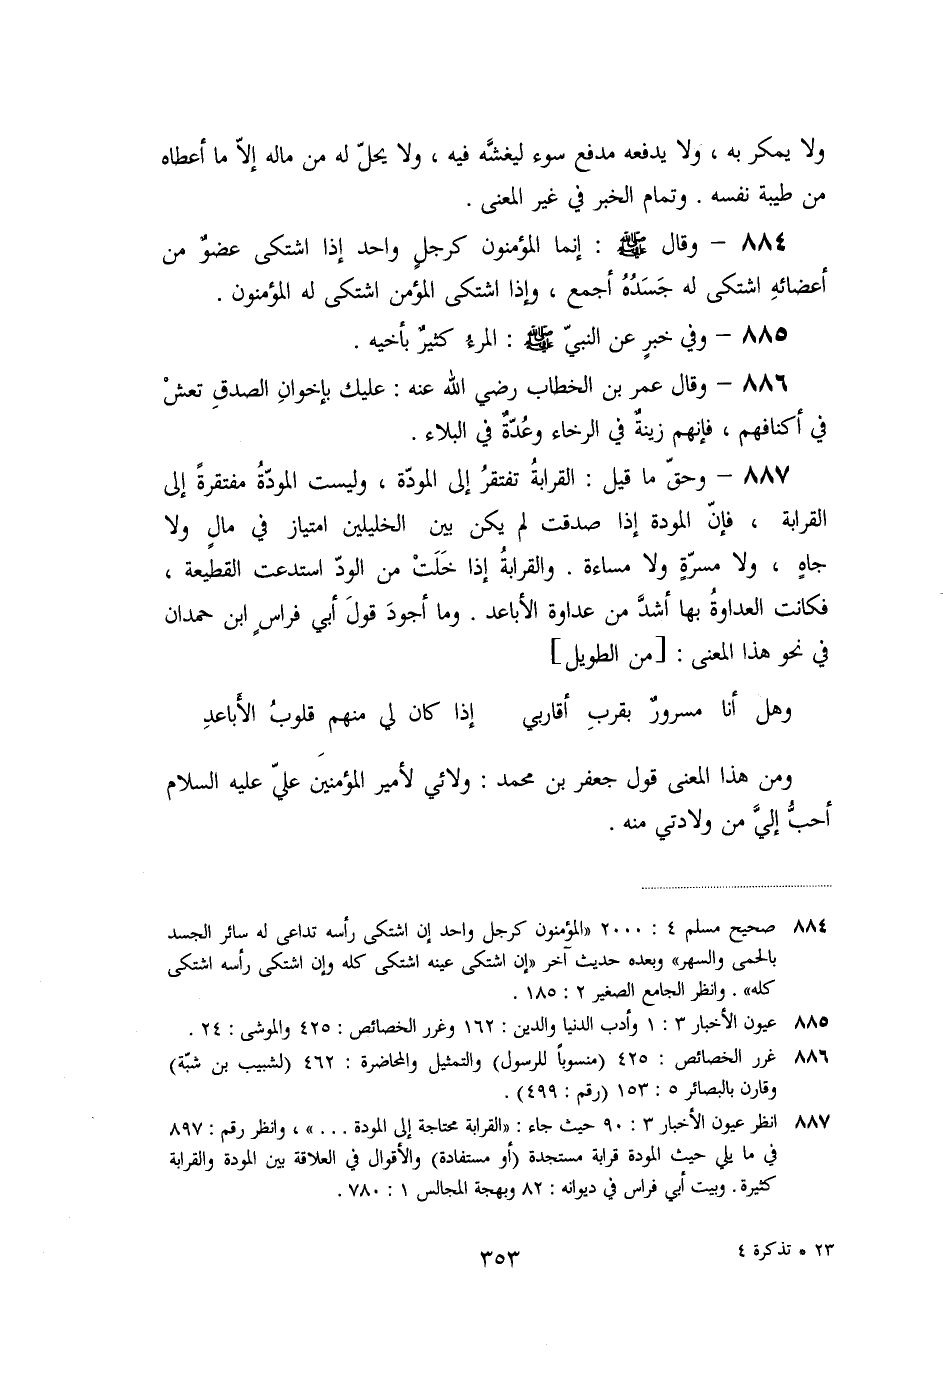 ولا يمكر به ، ولا يدفعه مدفع سوء ليغشَّه فيه ، ولا يحلّ له من ماله إلاّ ما أعطاه
من طيبة نفسه . وتمام الخبر في غير المعنى .
٨٨٤ – وقال ﷺ : إنما المؤمنون كرجلٍ واحد إذا اشتكى عضوٌ من
أعضائهِ اشتكى له جَسَدُهُ أجمع ، وإذا اشتكى المؤمن اشتكى له المؤمنون .
٨٨٥ – وفي خبرٍ عن النبيّ ﷺ : المرءُ كثيرٌ بأخيه .
٨٨٦ – وقال عمر بن الخطاب رضي الله عنه : عليك بإخوانِ الصدقِ تعشْ
في أكنافهم ، فإنهم زينةٌ في الرخاء وعُدّةٌ في البلاء .
٨٨٧ – وحقّ ما قيل : القرابةُ تفتقرُ إلى المودّة ، وليست المودّةُ مفتقرةً إلى
القرابة ، فإنّ المودة إذا صدقت لم يكن بين الخليلين امتياز في مالٍ ولا
جاهٍ ، ولا مسرّةٍ ولا مساءة . والقرابةُ إذا خَلَتْ من الودّ استدعت القطيعة ،
فكانت العداوةُ بها أشدَّ من عداوة الأباعد . وما أجودَ قولَ أبي فراسٍ ابن حمدان
في نحو هذا المعنى : [من الطويل]
وهل أنا مسرورٌ بقربِ أقاربي إذا كان لي منهم قلوبُ الأَباعدِ
ومن هذا المعنى قول جعفر بن محمد : ولائي لأمير المؤمنينَ عليّ عليه السلام
أحبُّ إليَّ من ولادتي منه .
٨٨٤ صحيح مسلم ٤ : ٢٠٠٠ «المؤمنون كرجل واحد إن اشتكى رأسه تداعى له سائر الجسد
بالحمى والسهر» وبعده حديث آخر «إن اشتكى عينه اشتكى كله وإن اشتكى رأسه اشتكى
كله» . وانظر الجامع الصغير ٢ : ١٨٥ .
٨٨٥ عيون الأخبار ٣ : ١ وأدب الدنيا والدين : ١٦٢ وغرر الخصائص : ٤٢٥ والموشى : ٢٤ .
٨٨٦ غرر الخصائص : ٤٢٥ (منسوباً للرسول) والتمثيل والمحاضرة : ٤٦٢ (لشبيب بن شبّة)
وقارن بالبصائر ٥ : ١٥٣ (رقم : ٤٩٩) .
٨٨٧ انظر عيون الأخبار ٣ : ٩٠ حيث جاء : «القرابة محتاجة إلى المودة . . . » ، وانظر رقم : ٨٩٧
في ما يلي حيث المودة قرابة مستجدة (أو مستفادة) والأقوال في العلاقة بين المودة والقرابة
كثيرة . وبيت أبي فراس في ديوانه : ٨٢ وبهجة المجالس ١ : ٧٨٠ .
٢٣ • تذكرة ٤
٣٥٣